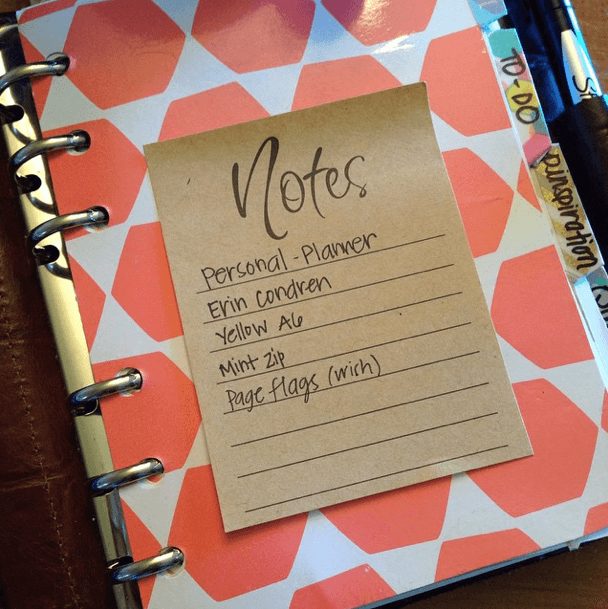 Notes
Personal - Planner
Erin Condren
Yellow A6
Mint Zip
Page flags (wish)
TO-DO
pinspiration